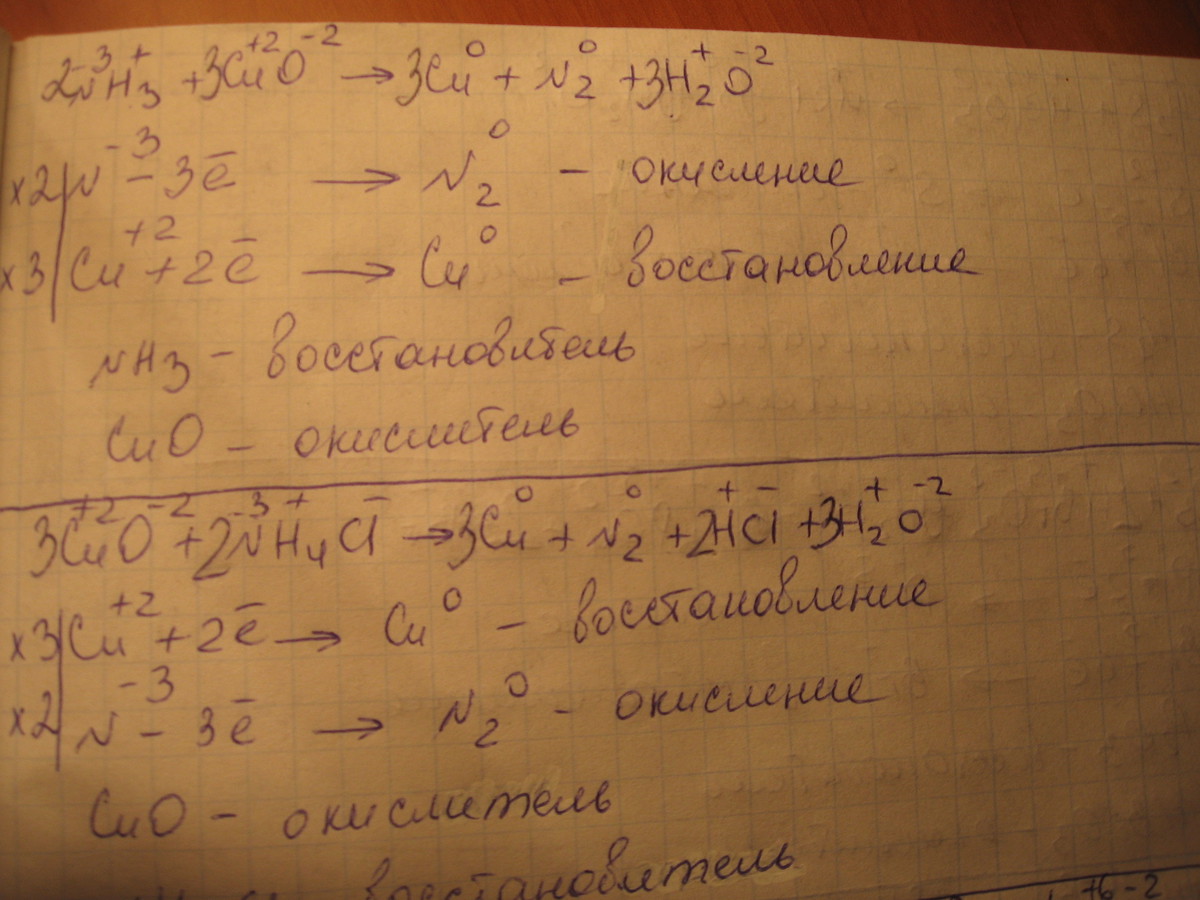 2N⁻³H₃⁺ + 3Cu⁺²O⁻² → 3Cu⁰ + N₂⁰ + 3H₂⁺O⁻²
x2| N⁻³ - 3ē → N₂⁰ - окисление
x3| Cu⁺² + 2ē → Cu⁰ - восстановление
NH3 - восстановитель
CuO - окислитель
3Cu⁺²O⁻² + 2N⁻³H₄⁺Cl⁻ → 3Cu⁰ + N₂⁰ + 2H⁺Cl⁻ + 3H₂⁺O⁻²
x3| Cu⁺² + 2ē → Cu⁰ - восстановление
x2| N⁻³ - 3ē → N₂⁰ - окисление
CuO - окислитель
восстановитель
+6 -2